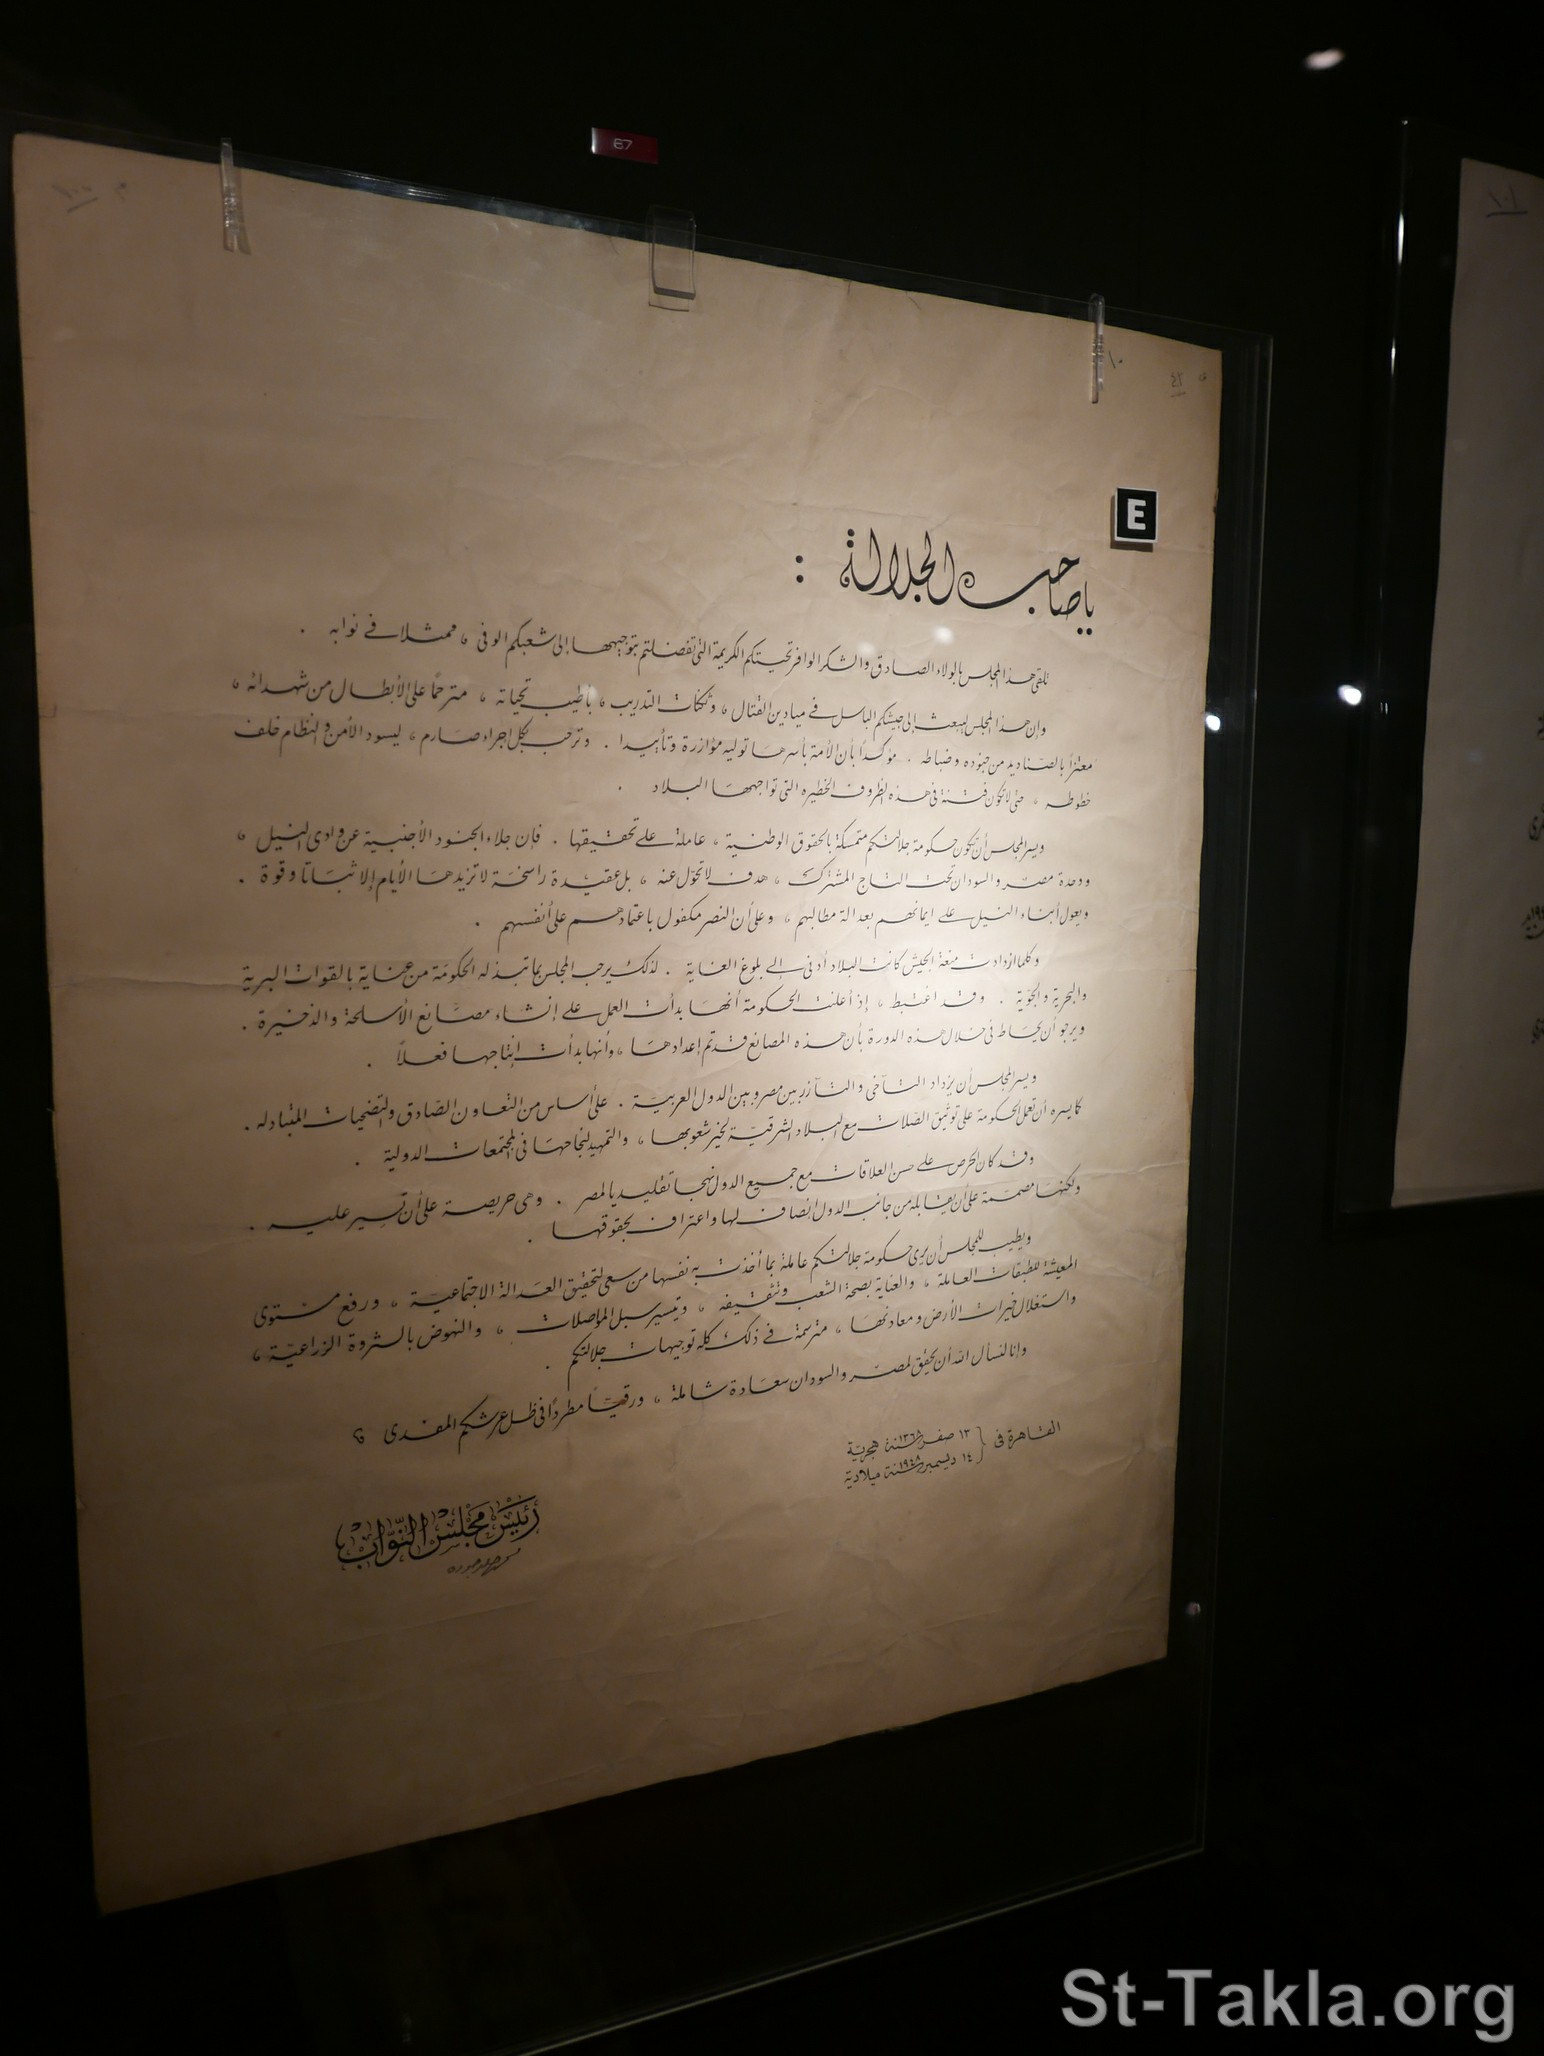 67
E
يا صاحب الجلالة :
تلقى هذا المجلس بالولاء الصادق والشكر الوافر تحيتكم الكريمة التى تفضلتم بتوجيهها إلى شعبكم الوفى ، ممثلا فى نوابه .
وإن هذا المجلس ليبعث إلى جيشكم الباسل فى ميادين القتال ، وثكنات التدريب ، بأطيب تحياته ، مترحمًا على الأبطال من شهدائه ،
معتزاً بالصناديد من جنوده وضباطه . مؤكدًا بأن الأمة بأسرها توليه مؤازرة وتأييدا . وترحب بكل إجراء صارم ، ليسود الأمن والنظام خلف
خطوطه ، حتى لا تكون فتنة فى هذه الظروف الخطيرة التى تواجهها البلاد .
ويسر المجلس أن تكون حكومة جلالتكم متمسكة بالحقوق الوطنية ، عاملة على تحقيقها . فإن جلاء الجنود الأجنبية عن وادى النيل ،
ووحدة مصر والسودان تحت التاج المشترك ، هدف لا تحوّل عنه ، بل عقيدة راسخة لا تزيدها الأيام إلا ثباتا وقوة .
ويعول أبناء النيل على ايمانهم بعدالة مطالبهم ، وعلى أن النصر مكفول باعتمادهم على أنفسهم .
وكلما ازدادت منعة الجيش كانت البلاد أدنى إلى بلوغ الغاية . لذلك يرحب المجلس بما تبذله الحكومة من عناية بالقوات البرية
والبحرية والجوّية . وقد اغتبط ، إذ أعلنت الحكومة أنها بدأت العمل على إنشاء مصانع الأسلحة والذخيرة .
ويرجو أن يحاط فى خلال هذه الدورة بأن هذه المصانع قد تم إعدادها ، وأنها بدأت إنتاجها فعلاً .
ويسر المجلس أن يزداد التآخى والتآزر بين مصر وبين الدول العربيّة . على أساس من التعاون الصّادق والتضحيات المتبادله .
كما يسره أن تعمل الحكومة على توثيق الصّلات مع البلاد الشرقيّة لخير شعوبها ، والتمهيد لنجاحها فى المجتمعات الدولية .
وقد كان الحرص على حسن العلاقات مع جميع الدول نهجا تقليديا لمصر . وهى حريصة على أن تسير عليه .
ولكنها مصممة على أن يقابله من جانب الدول إنصاف لها واعتراف بحقوقها .
ويطيب للمجلس أن يرى حكومة جلالتكم عاملة بما أخذت به نفسها من سعى لتحقيق العدالة الاجتماعيّة ، ورفع مستوى
المعيشة للطبقات العاملة ، والعناية بصحة الشعب وتثقيفه ، وتيسير سبل المواصلات ، والنهوض بالثروة الزراعيّة ،
واستغلال خيرات الأرض ومعادنها ، مترسمة فى ذلك كله توجيهات جلالتكم .
وإنا لنسأل الله أن يحقق لمصر والسودان سعادة شاملة ، ورقيًا مطردًا فى ظل عرشكم المفدى
القاهرة فى
١٣ صفر سنة ١٣٦٨ هجريّة
١٤ ديسمبر سنة ١٩٤٨ ميلادية
رئيس مجلس النواب
St-Takla.org